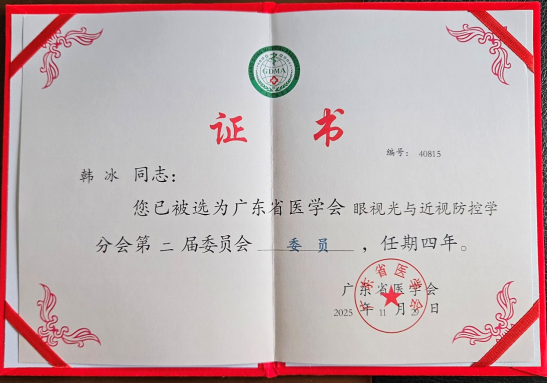 GDMA
证 书
编号： 40815
韩 冰 同志：
您已被选为广东省医学会 眼视光与近视防控学
分会第 二 届委员会 委 员 ，任期四年。
广东省医学会
广东省医学会
2025 年 11 月 25 日